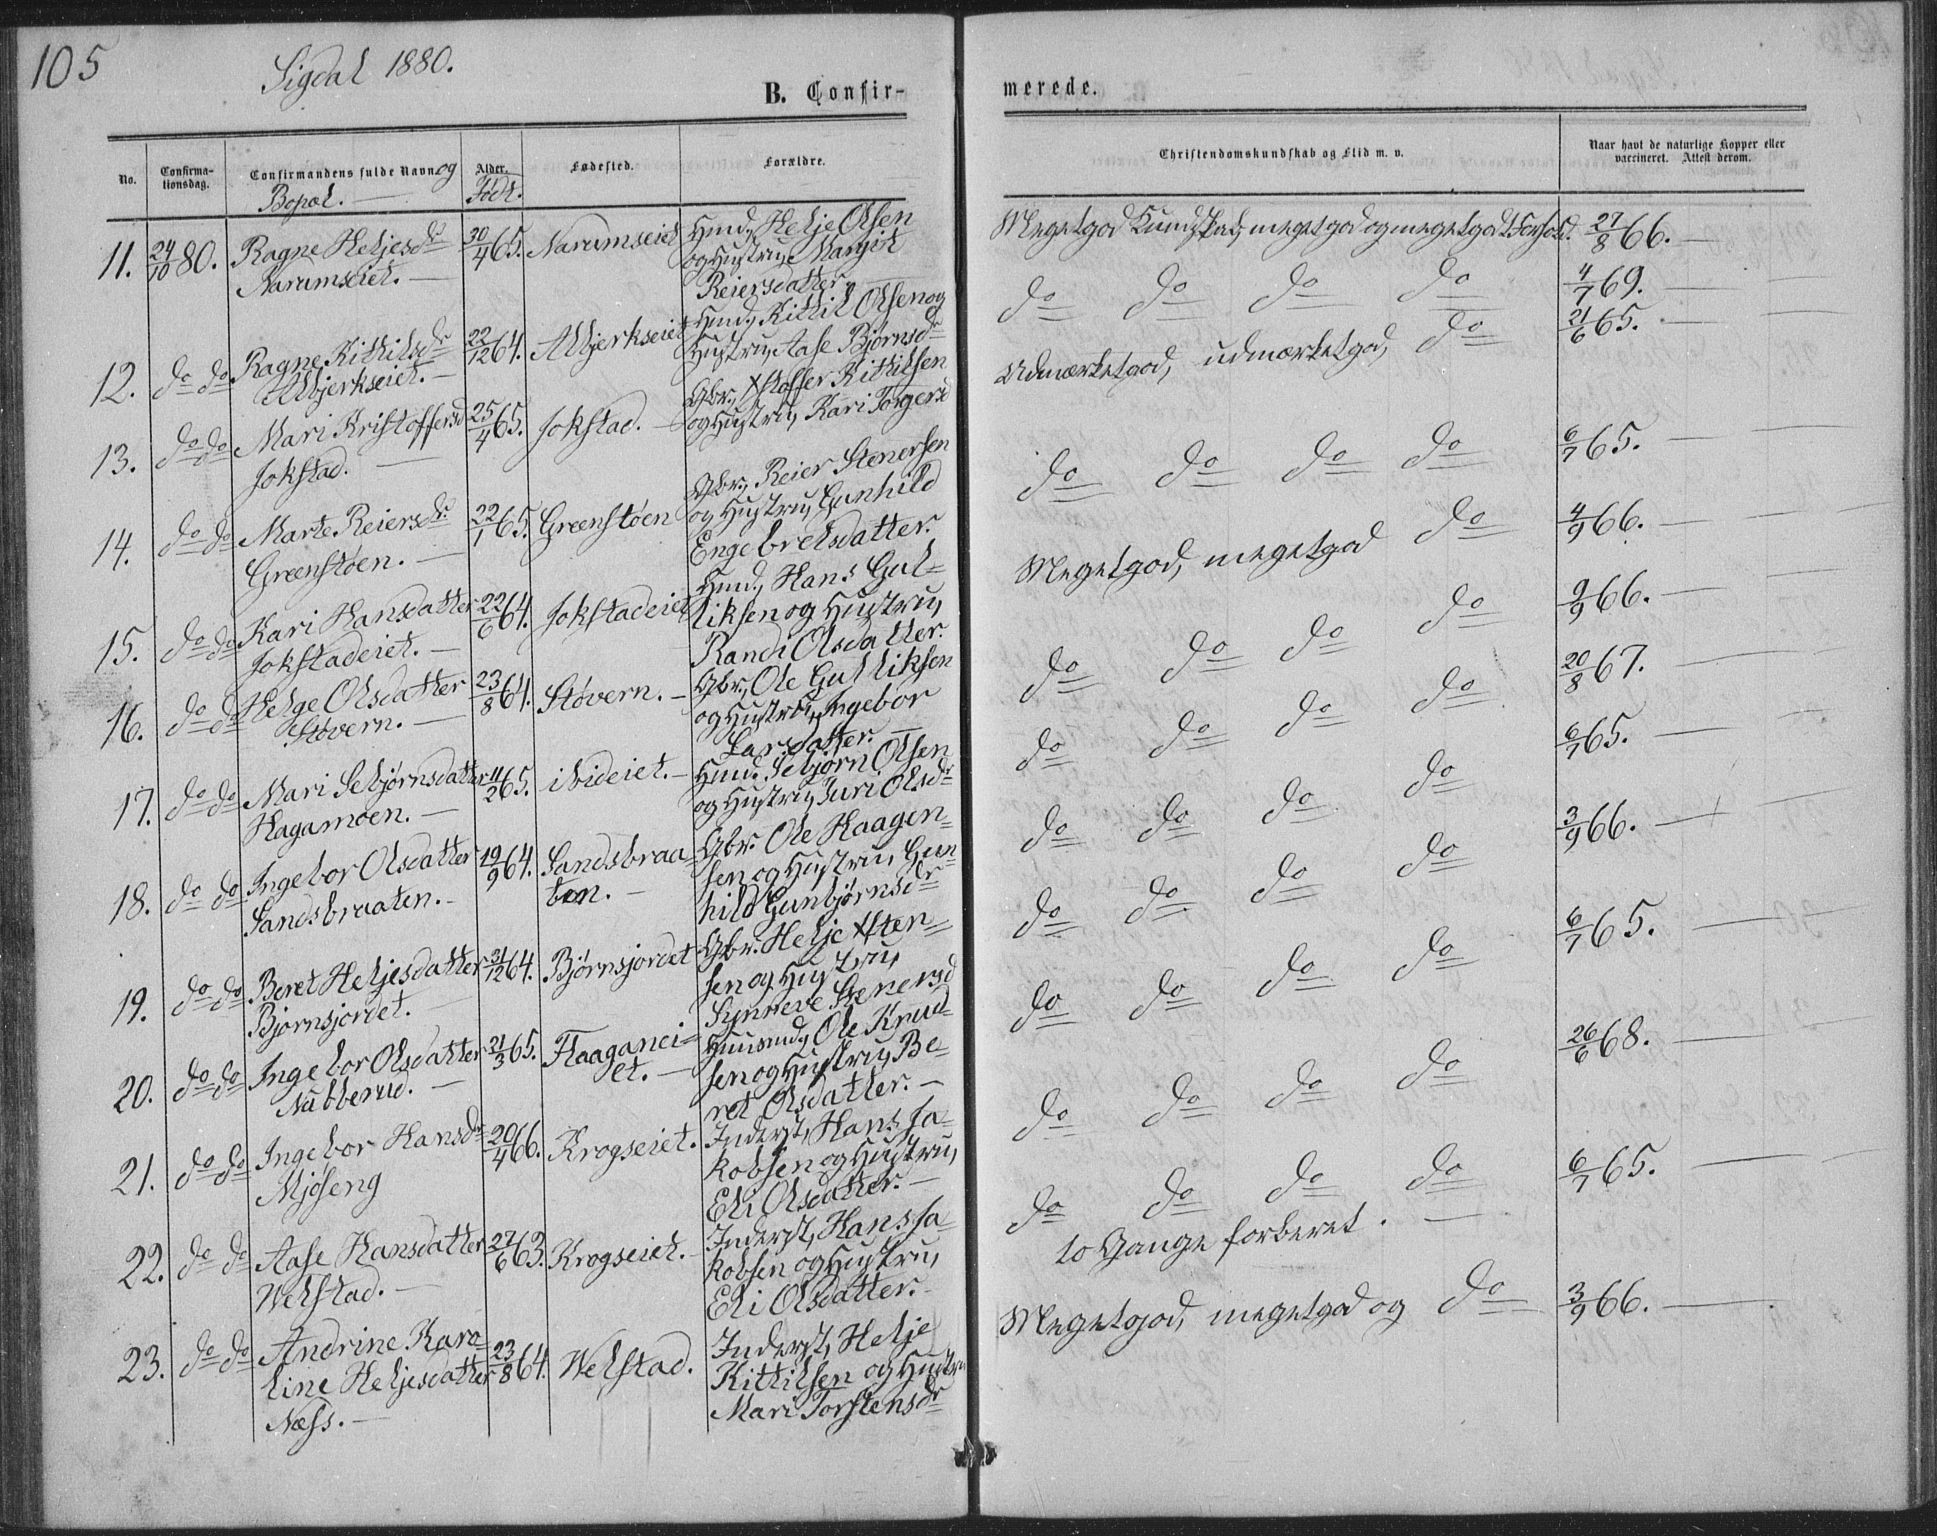 105
Sigdal 1880.
B. Confir-
merede.
No.
Confirma-
tionsdag.
Confirmandens fulde Navn og
Bopæl.
Alder.
Født.
Fødested.
Forældre.
Christendomskundskab og Flid m. v.
Naar havt de naturlige Kopper eller
vaccineret. Attest derom.
11. 24/10 80. Ragne Heljesdr 30/4 65. Narumseiet Hmd., Helje Olsen
Narumseiet. og Hustru, Margit
Reiersdatter
Megetgod Kundskab, megetgod og megetgodt Forhold. 27/8 66.
12. do do Ragne Kittilsdr 22/12 64. Albjerkseiet Hmd., Kittil Olsen og
Albjerkseiet. Hustru, Aase Bjørnsdr
do do do do 4/7 69.
13. do do Mari Kristoffersd 25/4 65. Jokstad. Gbr., Xstoffer Kittilsen
Jokstad. og Hustru, Kari Torgersd
Udmærketgod, udmærketgod, do 21/6 65.
14. do do Marte Reiersdr 22/1 65. Grønstøen Gbr., Reier Stenersen
Grønstøen. og Hustru, Gunhild
Engebretsdatter.
do do do do 6/7 65.
15. do do Kari Hansdatter 22/6 64. Jokstadeiet Hmd., Hans Gul-
Jokstadeiet. liksen og Hustru,
Randi Olsdatter.
Megetgod, megetgod do 4/9 66.
16. do do Helge Olsdatter 23/8 64. Støvern. Gbr., Ole Gulliksen
Støvern. og Hustru, Ingebor
Larsdatter.
do do do do 9/9 66.
17. do do Mari Sebjørnsdatter 11/2 65. Hmd. Sebjørn Olsen
Hagamoen. og Hustru, Turi Olsdr
do do do do 20/8 67.
18. do do Ingebor Olsdatter 19/9 64. Sandsbraa- Gbr. Ole Haagen-
Sandsbraaten. ten. sen og Hustru, Gun-
hild Gunbjørnsdr
do do do do 6/7 65.
19. do do Beret Heljesdatter 31/12 64. Bjørnsjordet Gbr. Helje Xsten-
Bjørnsjordet. sen og Hustru,
Synneve Stenersd
do do do do 3/9 66.
20. do do Ingebor Olsdatter 21/3 65. Haaganei- Huusmd., Ole Knud-
Nubberud. et. sen og Hustru, Be-
ret Olsdatter.
do do do do 6/7 65.
21. do do Ingebor Hansdr 20/4 66. Krogseiet. Inderst, Hans Ja-
Mjøseng kobsen og Hustru,
Eli Olsdatter.
do do do do 26/6 68.
22. do do Aase Hansdatter 22/6 63. Krogseiet. Inderst, Hans Ja-
Welstad. kobsen og Hustru,
Eli Olsdatter.
do do do do 6/7 65.
10 Gange forberet.
23. do do Andrine Karo- 23/8 64. Welstad. Inderst, Helje
line Heljesdatter Kittilsen og Hustru
Næss. Mari Torstensdr
Megetgod, megetgod og do 3/9 66.